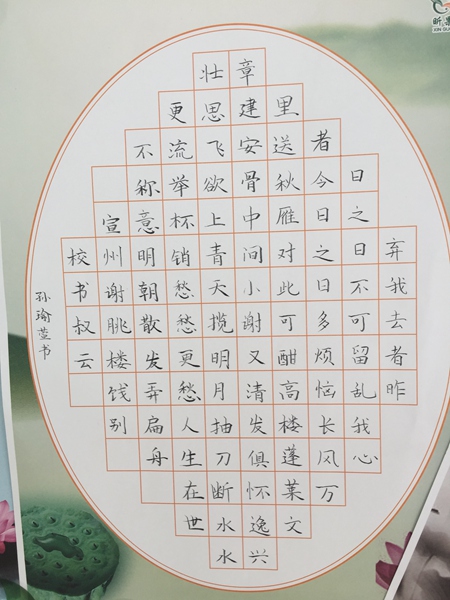 弃我去者昨
日之日不可留乱我心
者今日之日多烦恼长风万
里送秋雁对此可酣高楼蓬葉文
章建安骨中间小谢又清发俱怀逸兴
壮思飞欲上青天揽明月抽刀断水水
更流举杯销愁愁更愁人生在世
不称意明朝散发弄扁舟
宣州谢朓楼饯别
校书叔云
孙瑜莹书